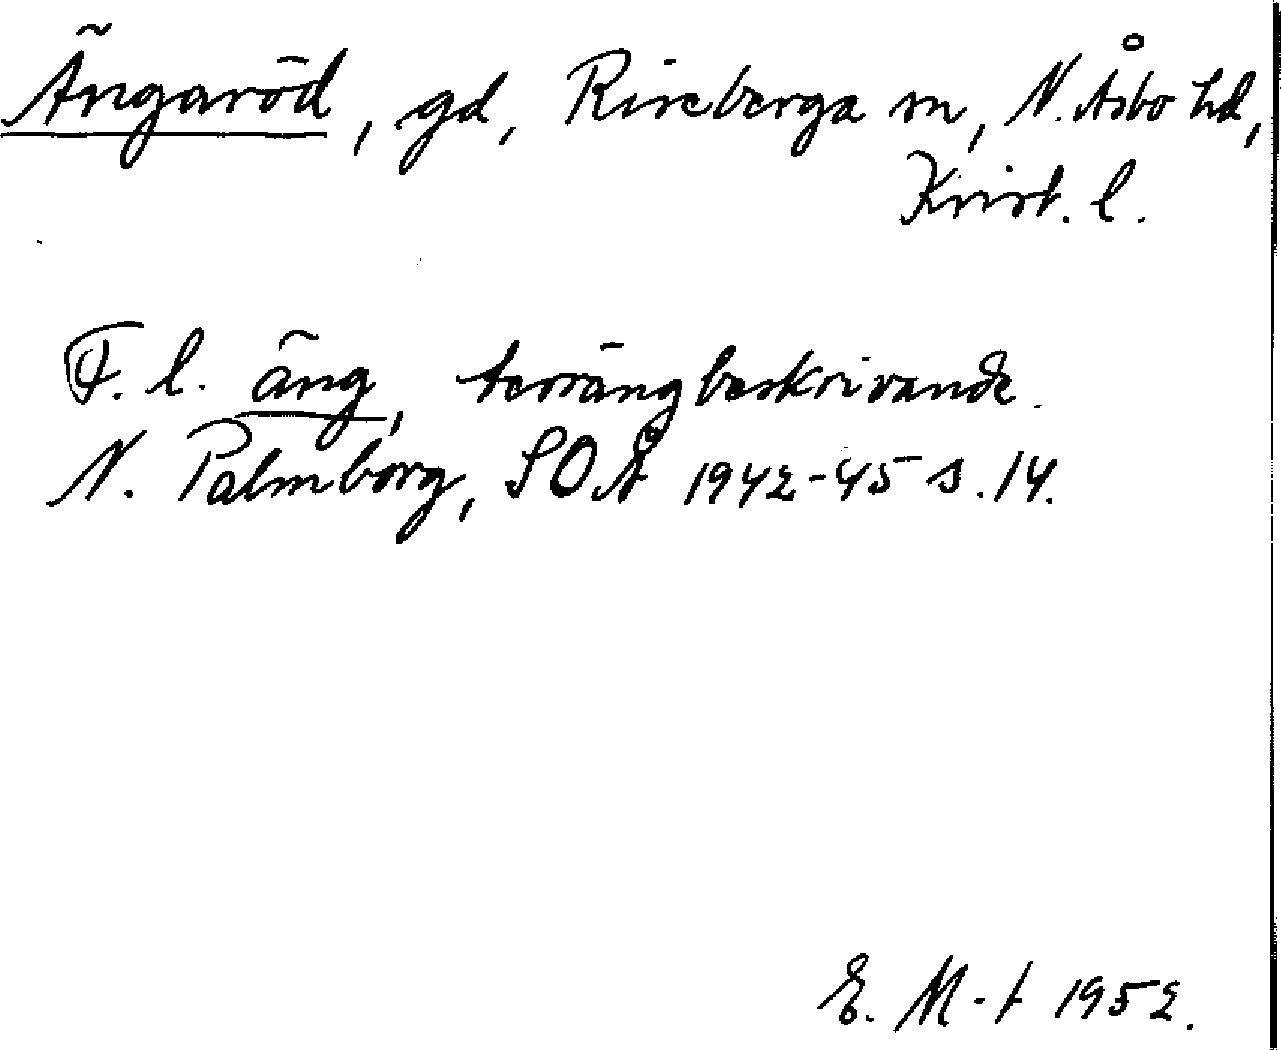 Ängaröd, gd, Riseberga sn, N. Åsbo hd,
Krist. l.
F. l. äng, terrängbeskrivande.
N. Palmborg, SOÅ 1942-45 s. 14.
E. M-t 1952.